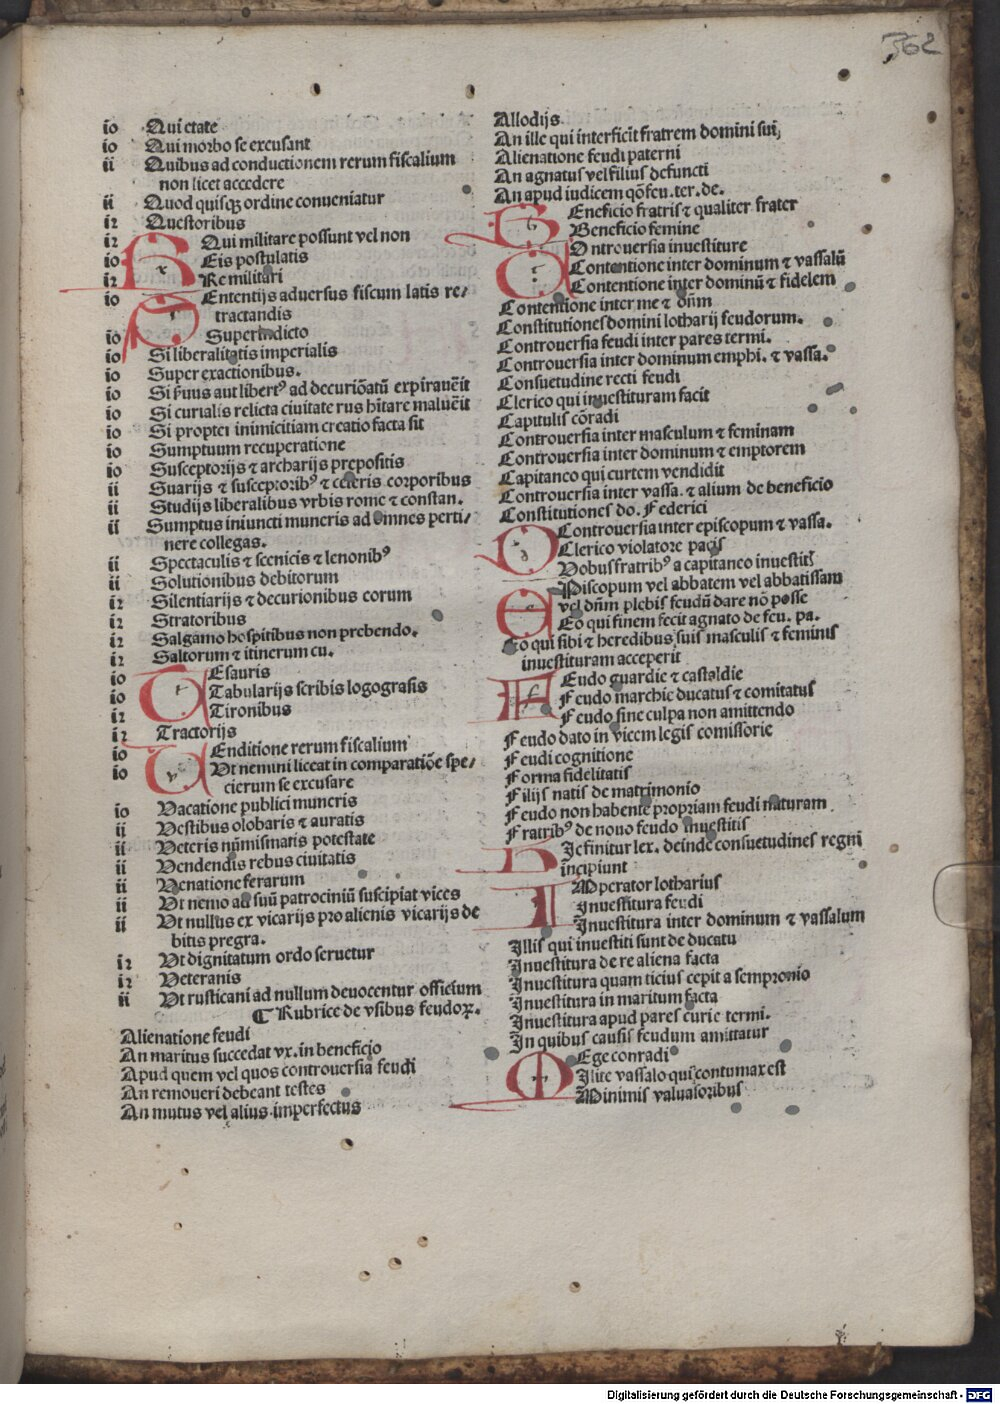 362
io Qui etate
io Qui morbo se excusant
ii Quibus ad conductionem rerum fiscalium
non licet accedere
ii Quod quisqꝫ ordine conueniatur
i2 Questoribus
i2 Qui militare possunt vel non
io R Eis postulatis
i2 Re militari
io S Ententijs aduersus fiscum latis re/
tractandis
io Superindicto
io Si liberalitatis imperialis
io Super exactionibus.
io Si ẜuus aut libertꝰ ad decuriõatũ expirauẽit
io Si curialis relicta ciuitate rus hĩtare maluẽit
io Si propter inimicitiam creatio facta sit
io Sumptuum recuperatione
io Susceptorijs ⁊ archarijs prepositis
ii Suarijs ⁊ susceptoribꝰ ⁊ ceteris corporibus
ii Studijs liberalibus vrbis rome ⁊ constan.
ii Sumptus iniuncti muneris ad omnes perti/
nere collegas.
ii Spectaculis ⁊ scenicis ⁊ lenonibꝰ
ii Solutionibus debitorum
i2 Silentiarijs ⁊ decurionibus eorum
i2 Stratoribus
i2 Salgamo hospitibus non prebendo.
i2 Saltorum ⁊ itinerum cu.
io T Esauris
io Tabularijs scribis logografis
i2 Tironibus
i2 Tractorijs
io V Enditione rerum fiscalium
io Vt nemini liceat in comparatiõe spe/
cierum se excusare
io Vacatione publici muneris
ii Vestibus olobaris ⁊ auratis
ii Veteris nũmismatis potestate
ii Vendendis rebus ciuitatis
ii Venatione ferarum
ii Vt nemo ad suũ patrociniũ suscipiat vices
ii Vt nullus ex vicarijs pro alienis vicarijs de
bitis pregra.
i2 Vt dignitatum ordo seruetur
i2 Veteranis
ii Vt rusticani ad nullum deuocentur officium
¶ Rubrice de vsibus feudoꝝ.
Alienatione feudi
An maritus succedat vx. in beneficio
Apud quem vel quos controuersia feudi
An remoueri debeant testes
An mutus vel alius imperfectus
Allodijs
An ille qui interficit fratrem domini sui,
Alienatione feudi paterni
An agnatus vel filius defuncti
An apud iudicem qõ feu. ter. de.
B Eneficio fratris ⁊ qualiter frater
Beneficio femine
C Ontrouersia inuestiture
Contentione inter dominum ⁊ vassalũ
Contentione inter dominũ ⁊ fidelem
Contentione inter me ⁊ dñm
Constitutiones domini lotharij feudorum.
Controuersia feudi inter pares termi.
Controuersia inter dominum emphi. ⁊ vassa.
Consuetudine recti feudi
Clerico qui inuestituram facit
Capitulis cõradi
Controuersia inter masculum ⁊ feminam
Controuersia inter dominum ⁊ emptorem
Capitaneo qui curtem vendidit
Controuersia inter vassa. ⁊ alium de beneficio
Constitutiones do. Federici
Controuersia inter episcopum ⁊ vassa.
Clerico violatore pacis
D Vobus fratribꝰ a capitaneo inuestis
E Piscopum vel abbatem vel abbatissam
vel dñm plebis feudũ dare nõ posse
Eo qui finem fecit agnato de feu. pa.
Eo qui sibi ⁊ heredibus suis masculis ⁊ feminis
inuestituram acceperit
F Eudo guardie ⁊ castaldie
Feudo marchie ducatus ⁊ comitatus
Feudo sine culpa non amittendo
Feudo dato in vicem legis comissorie
Feudi cognitione
Forma fidelitatis
Filijs natis de matrimonio
Feudo non habente propriam feudi naturam
Fratribꝰ de nouo feudo inuestitis
H Ic finitur lex. deinde consuetudines regni
incipiunt
I Mperator lotharius
Inuestitura feudi
Inuestitura inter dominum ⁊ vassalum
Illis qui inuestiti sunt de ducatu
Inuestitura de re aliena facta
Inuestitura quam ticius cepit a sempronio
Inuestitura in maritum facta
Inuestitura apud pares curie termi.
In quibus causis feudum amittatur
Ege conradi
M Ilite vassalo qui contumax est
Minimis valuasoribus
Digitalisierung gefördert durch die Deutsche Forschungsgemeinschaft - DFG